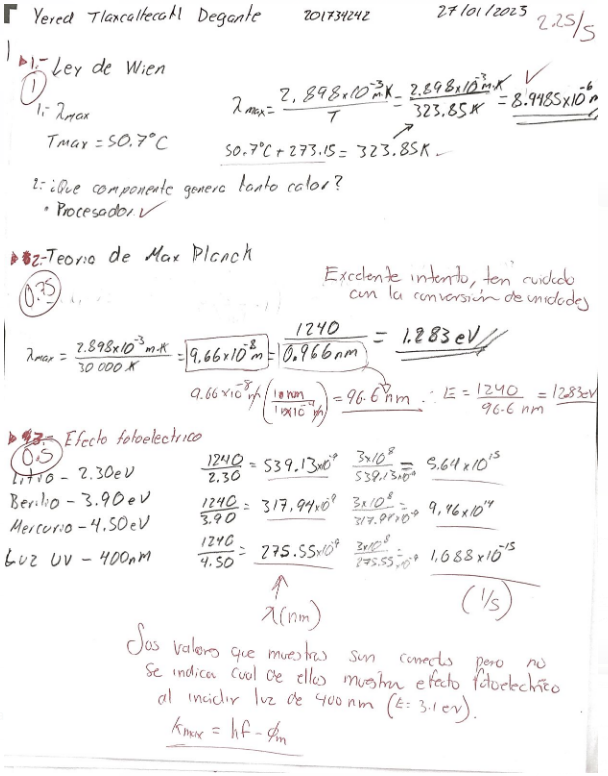 Yered Tlaxcaltecatl Degante 201734242 27/01/2023 2.25/5
1.- Ley de Wien
1
1.- λmax
Tmax = 50.7°C
λmax = 2.898x10^-3 m·K / T = 2.898x10^-3 m·K / 323.85K = 8.9485x10^-6 m ✓
50.7°C + 273.15 = 323.85K
2.- ¿Que componente genera tanto calor?
• Procesador. ✓
2.- Teoria de Max Planck
0.75
Excelente intento, ten cuidado
con la conversión de unidades
λmax = 2.898x10^-3 m·K / 30 000 K = 9.66x10^-8 m = 1240 / 0.966nm = 1.283 eV
9.66x10^-8 m = 96.6 nm ∴ E = 1240 / 96.6 nm = 12.83eV
3.- Efecto fotoelectrico
0.5
Litio - 2.30eV 1240/2.30 = 539.13x10^-9 3x10^8/539.13x10^-9 = 5.64x10^15
Berilio - 3.90eV 1240/3.90 = 317.94x10^-9 3x10^8/317.94x10^-9 9,46x10^14
Mercurio - 4.50eV 1240/4.50 = 275.55x10^-9 3x10^8/275.55x10^-9 1,088x10^-15
Luz UV - 400nm
λ(nm) (1/s)
Los valores que muestras son correctos pero no
se indica cual de ellos muestra efecto fotoelectrico
al incidir luz de 400nm (E = 3.1 eV).
Kmax = hf - ϕm